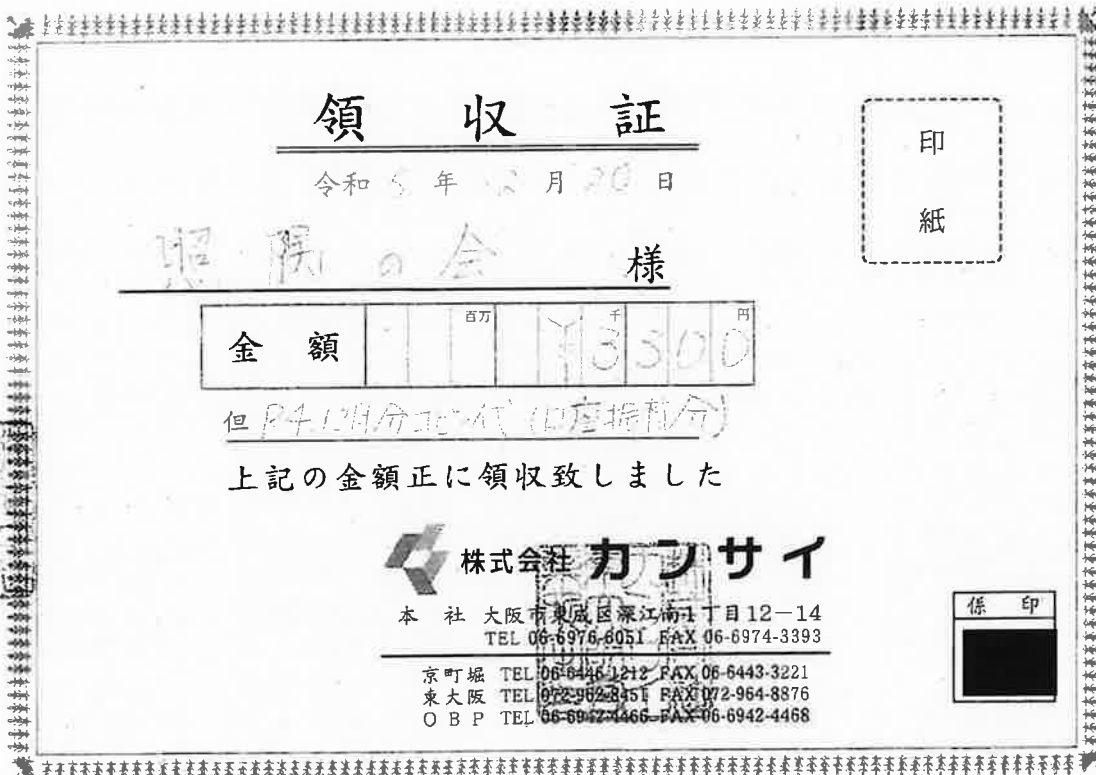 領収証
印紙
令和5年 2月20日
照隅の会 様
金額 百万 千 円 ¥3300
但 R4.12月分コピー代(口座振替分)
上記の金額正に領収致しました
株式会社 カンサイ
本社 大阪市東成区深江南1丁目12-14
TEL 06-6976-6051 FAX 06-6974-3393
京町堀 TEL 06-6446-1212 FAX 06-6443-3221
東大阪 TEL 072-962-8451 FAX 072-964-8876
OBP TEL 06-6942-4466 FAX 06-6942-4468
係印